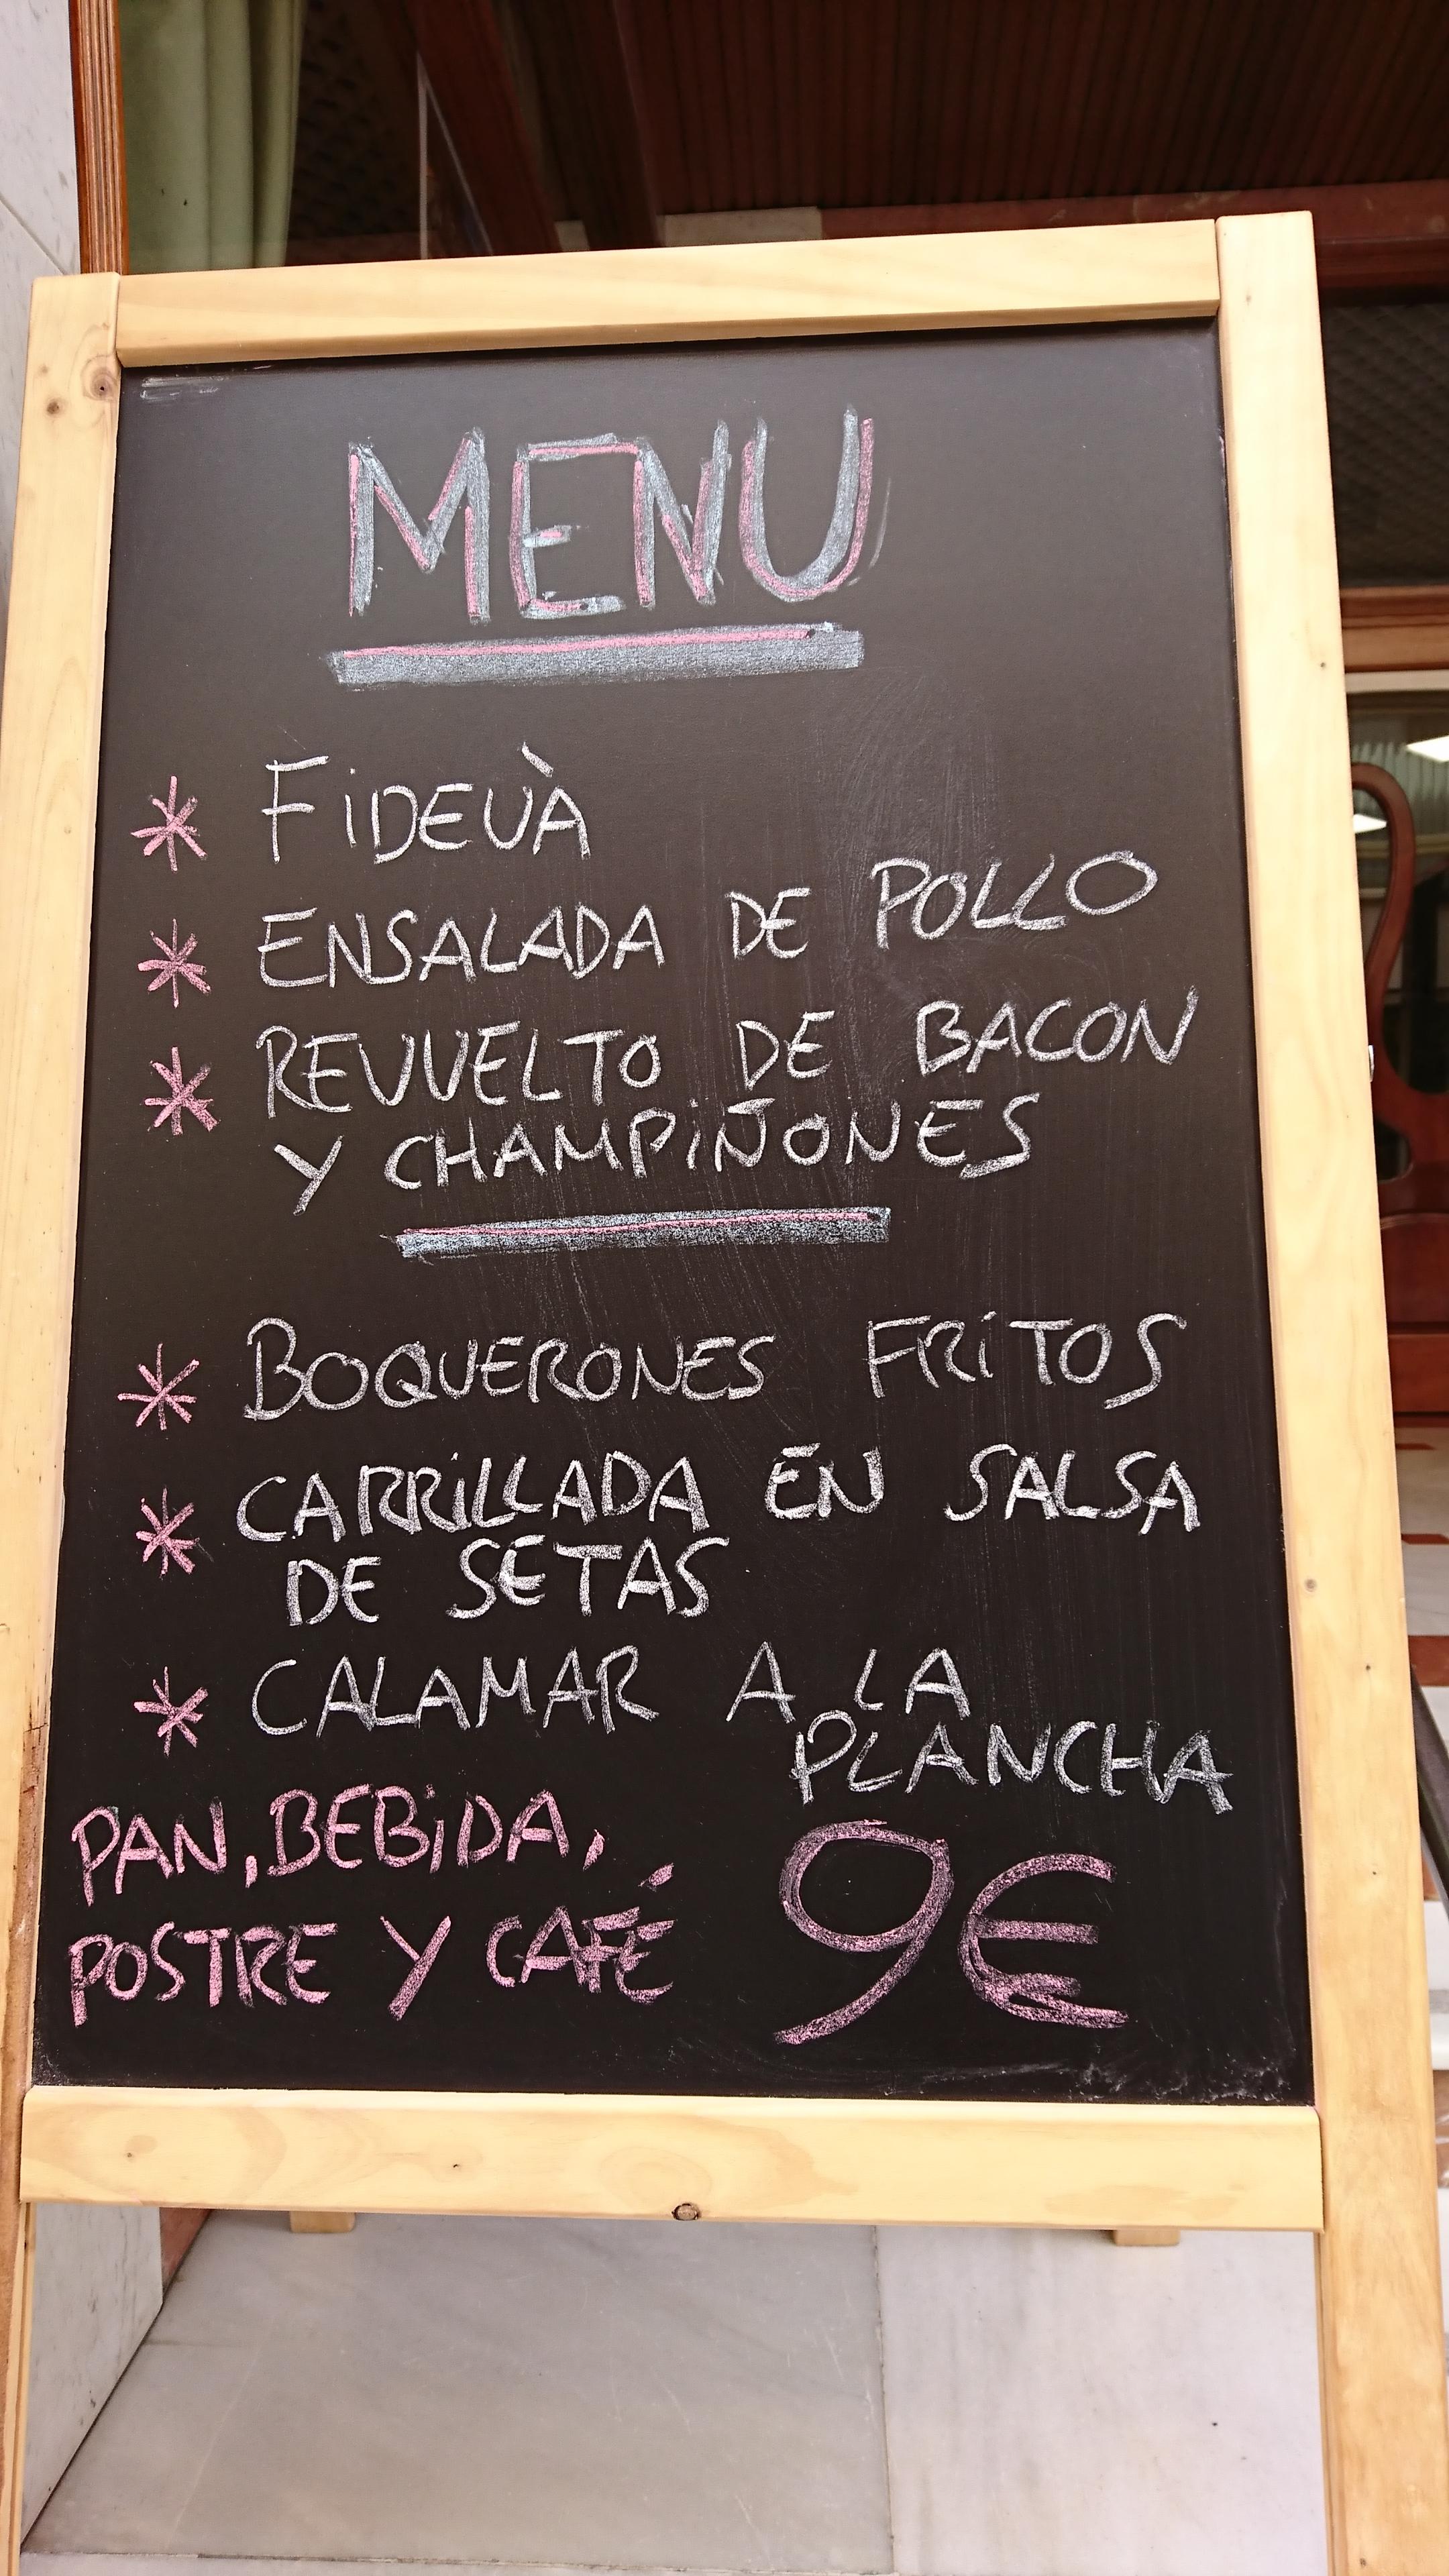 MENU
* FiDEUÀ
* ENSALADA DE POLLO
* REVUELTO DE BACON
Y CHAMPiÑONES
* BOQUERONES FRiTOS
* CARRiLLADA EN SALSA
DE SETAS
* CALAMAR A LA
PLANCHA
PAN, BEBiDA,
POSTRE Y CAFÉ
9€